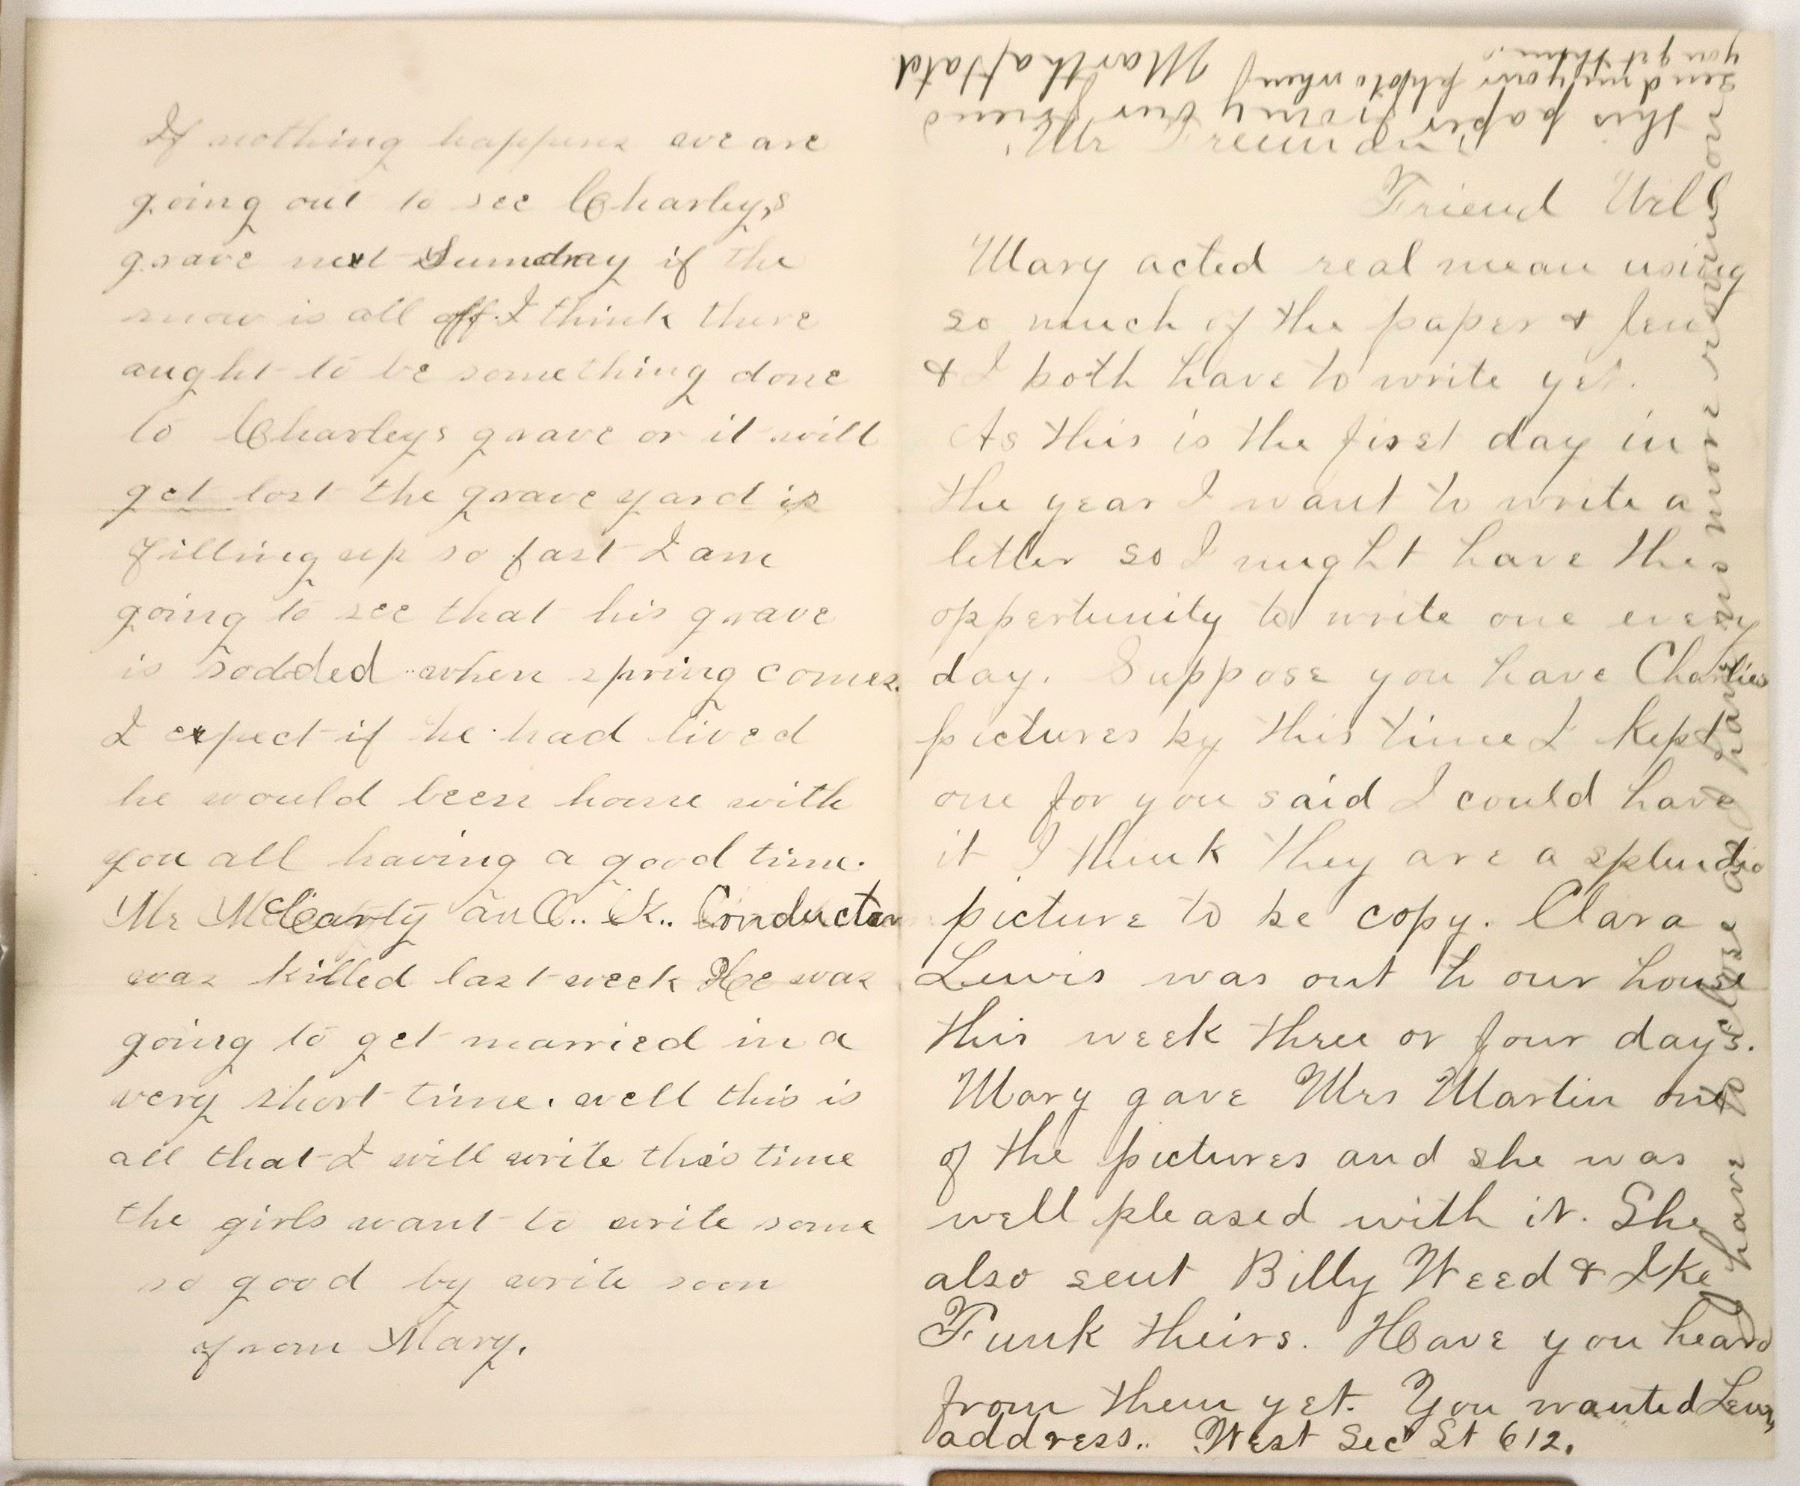 If nothing happens we are
going out to see Charley,s
grave next Sunday if the
snow is all off. I think there
aught to be something done
to Charleys grave or it will
get lost the grave yard is
filling up so fast I am
going to see that his grave
is sodded when spring comes.
I expect if he had lived
he would been home with
you all having a good time.
Mr McCarty an C.. K.. Conductor
was killed last week He was
going to get married in a
very short time. well this is
all that I will write this time
the girls want to write some
so good by write soon
from Mary.
Mr Freeman
Friend Will
Mary acted real mean using
so much of the paper & Lew
& I both have to write yet.
As this is the first day in
the year I want to write a
letter so I might have the
oppertunity to write one every
day. Suppose you have Charlies
pictures by this time I kept
one for you said I could have
it I think they are a splendid
picture to be copy. Clara
Lewis was out to our house
this week three or four days.
Mary gave Mrs Martin one
of the pictures and she was
well pleased with it. She
also sent Billy Weed & Ike
Funk theirs. Have you heard
from them yet. You wanted Lews
address.. West Sec St 612.
have to close as I have no more room on
this paper from your friend
send me your photo when
you get them.
Martha